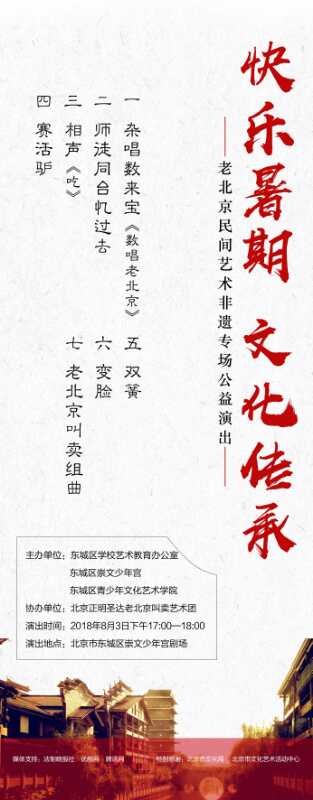 快乐暑期 文化传承
老北京民间艺术非遗专场公益演出
一 杂唱数来宝《数唱老北京》
二 师徒同台忆过去
三 相声《吃》
四 赛活驴
五 双簧
六 变脸
七 老北京叫卖组曲
主办单位：东城区学校艺术教育办公室
东城区崇文少年宫
东城区青少年文化艺术学院
协办单位：北京正明圣达老北京叫卖艺术团
演出时间：2018年8月3日下午17:00—18:00
演出地点：北京市东城区崇文少年宫剧场
媒体支持：法制晚报社 优酷网 腾讯网
特别鸣谢：北京市文化局 北京市文化艺术活动中心